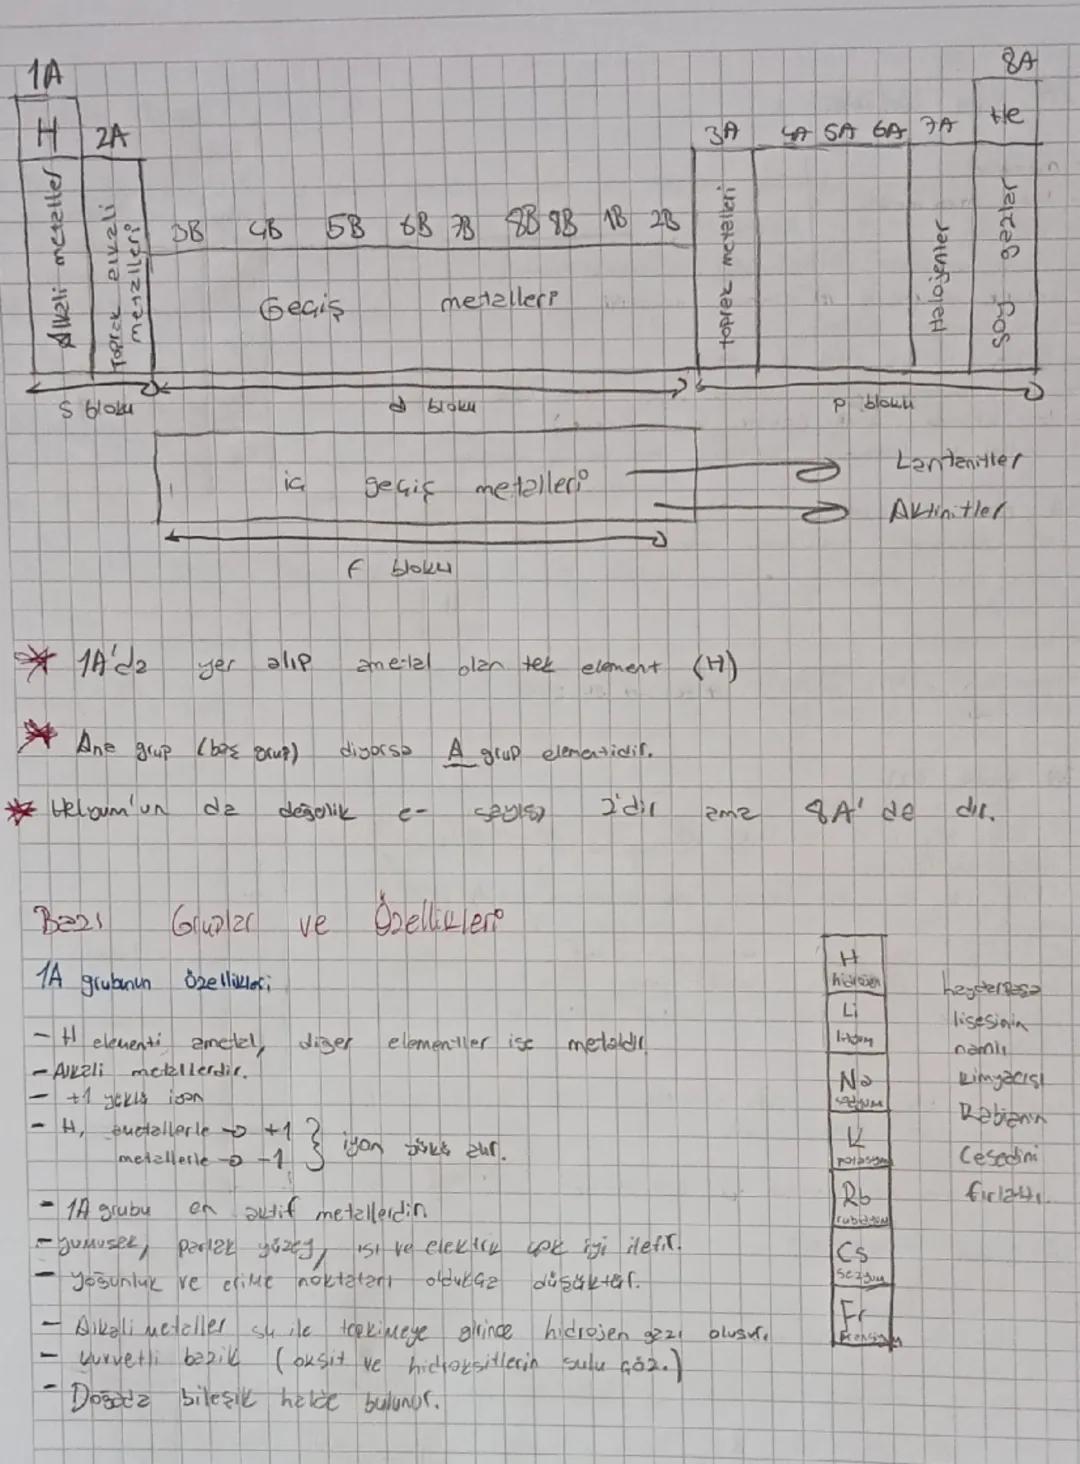 1A
8A
H
2A
3A
4A 5A 6A 7A
He
Alkali metaller
Toprak alkali metalleri
3B 4B 5B 6B 7B 8B 8B 1B 2B
Geçiş metalleri
toprak metalleri
Halojenler
Soy gazlar
s bloku
d bloku
p bloku
iç geçiş metalleri
Lantanitler
Aktinitler
f bloku
1A'da yer alıp ametal olan tek element (H)
Ana grup (baş grup) diyorsa A grup elementidir.
Helyum'un da değerlik e- sayısı 2'dir ama 8A' de dir.
Bazı Gruplar ve Özellikleri
1A grubunun özellikleri
- H elementi ametal, diğer elementler ise metaldir.
- Alkali metallerdir.
- +1 yüklü iyon
- H, ametallerle → +1
metallerle → -1 } iyon yükü alır.
- 1A grubu en aktif metallerdir.
- yumuşak, parlak yüzey, ısı ve elektrik çok iyi iletir.
- yoğunluk ve erime noktaları oldukça düşüktür.
- Alkali metaller su ile tepkimeye girince hidrojen gazı oluşur.
- kuvvetli bazik (oksit ve hidroksitlerin sulu çöz.)
- Doğada bileşik halde bulunur.
H
hidrojen
Li
lityum
Na
sodyum
K
potasyum
Rb
rubidyum
Cs
sezyum
Fr
fransiyum
haydarpaşa
lisesinin
namlı
kimyacısı
Rabianın
Cesedini
fırlattı.